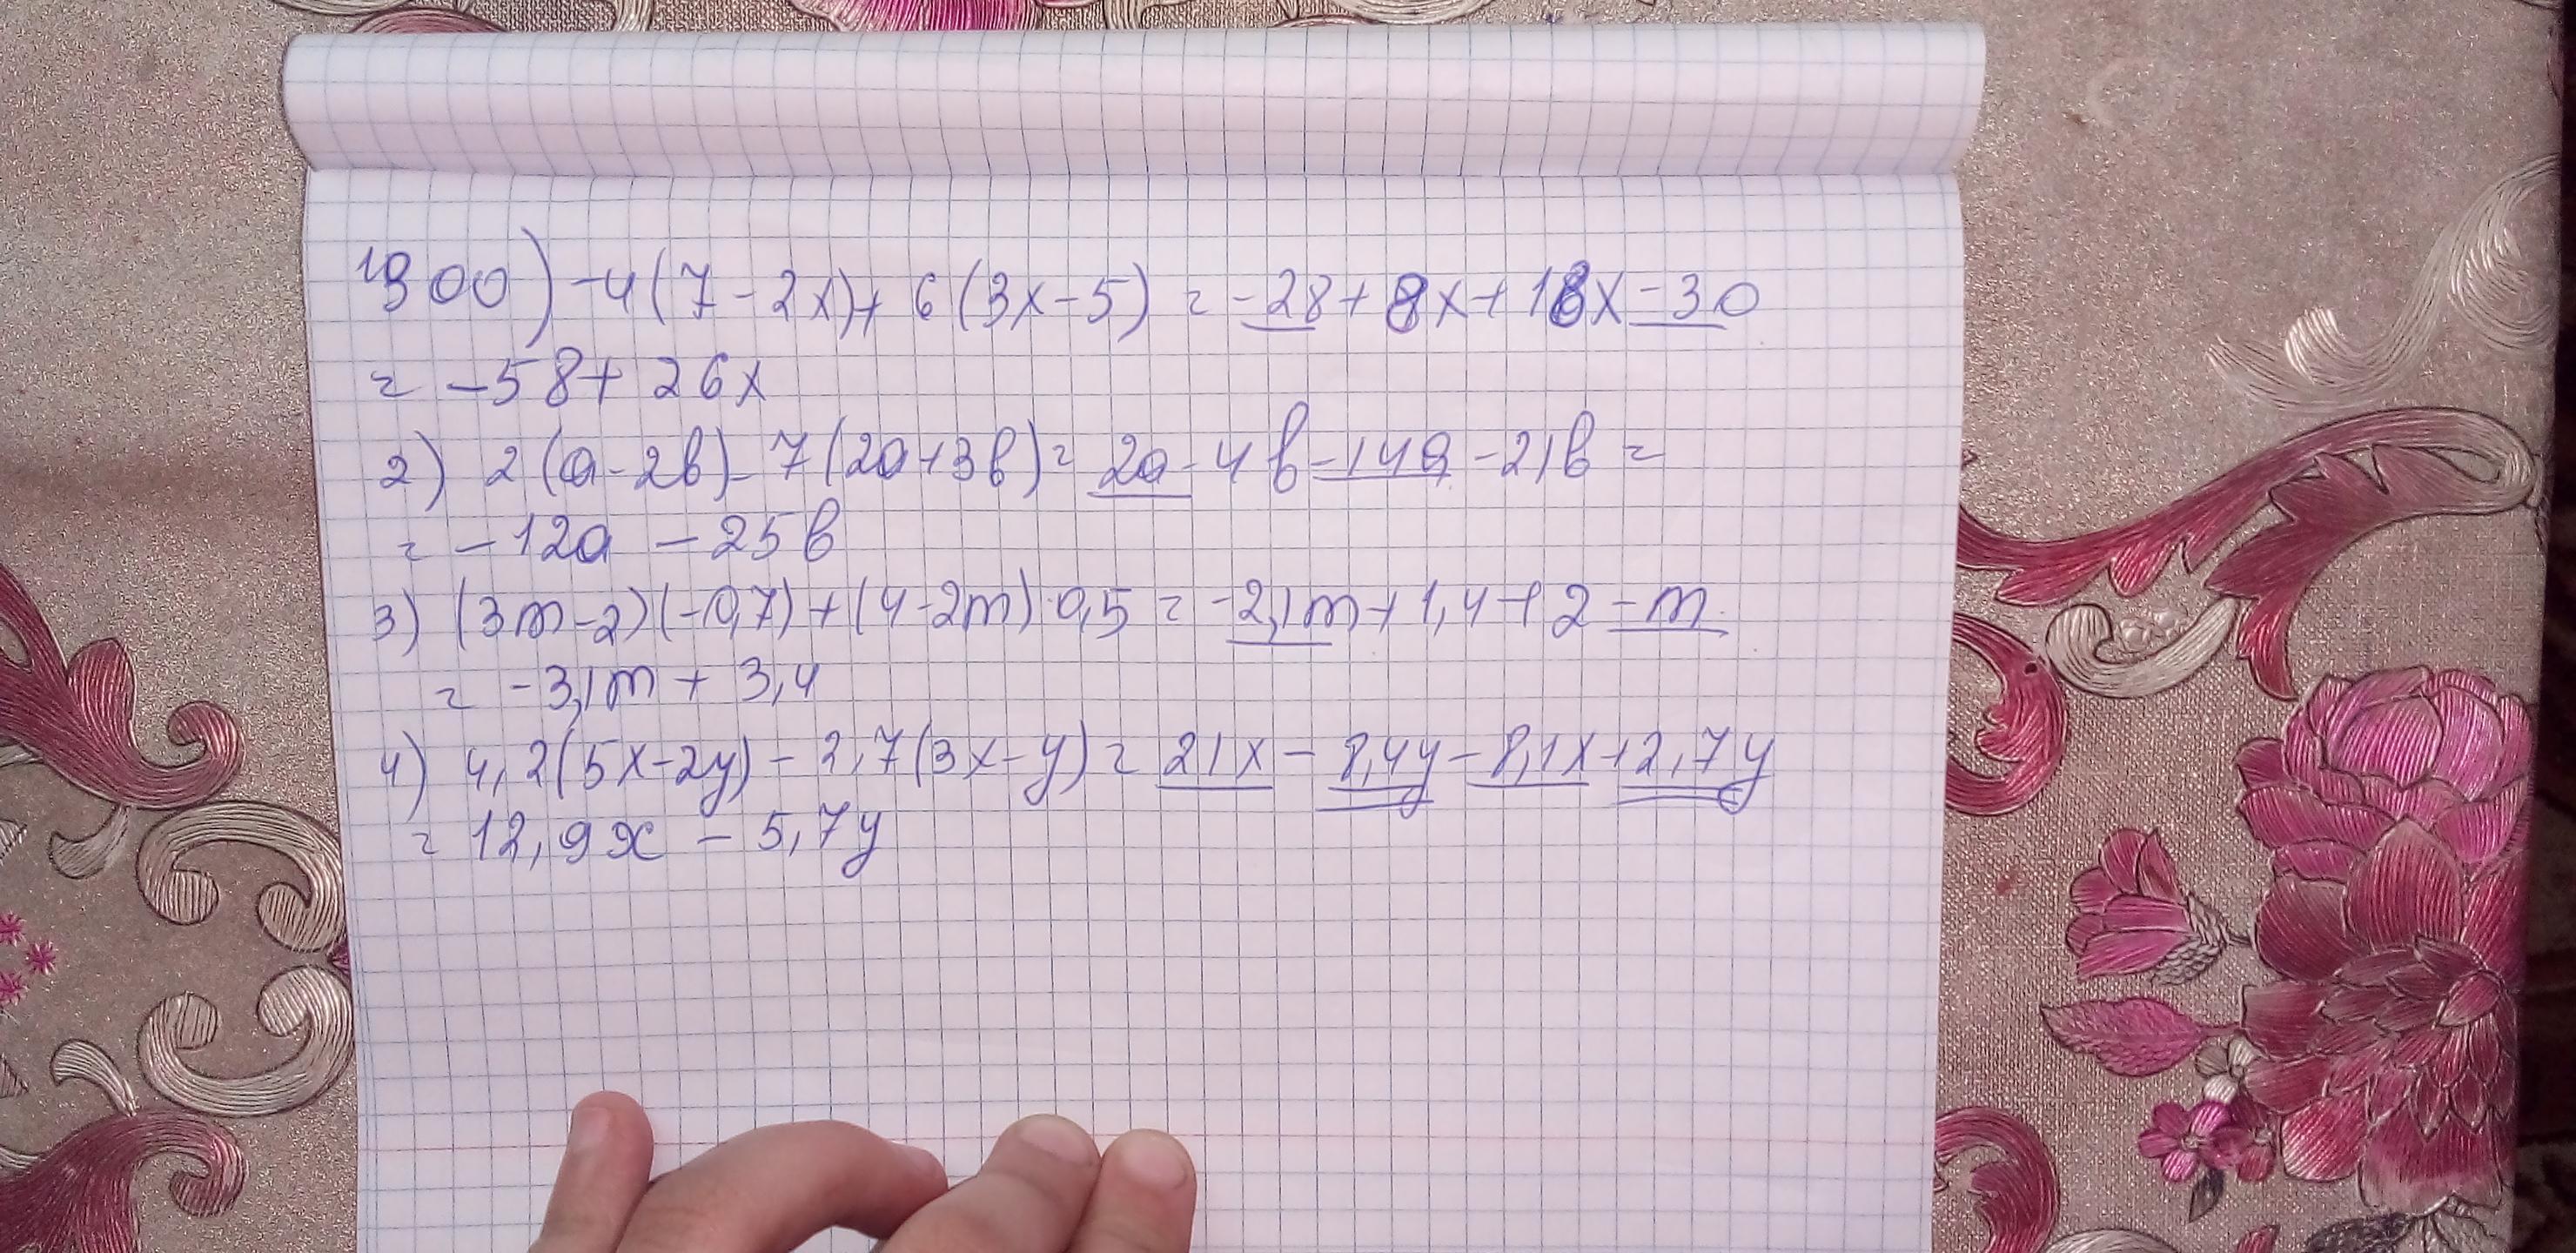 1300) -4(7-2x)+6(3x-5) = -28+8x+18x-30
= -58+26x
2) 2(a-2b)-7(2a+3b)= 2a-4b-14a-21b =
= -12a-25b
3) (3m-2)(-0,7)+(4-2m)·0,5 = -2,1m+1,4+2-m
= -3,1m+3,4
4) 4,2(5x-2y)-2,7(3x-y)= 21x-8,4y-8,1x+2,7y
= 12,9x-5,7y